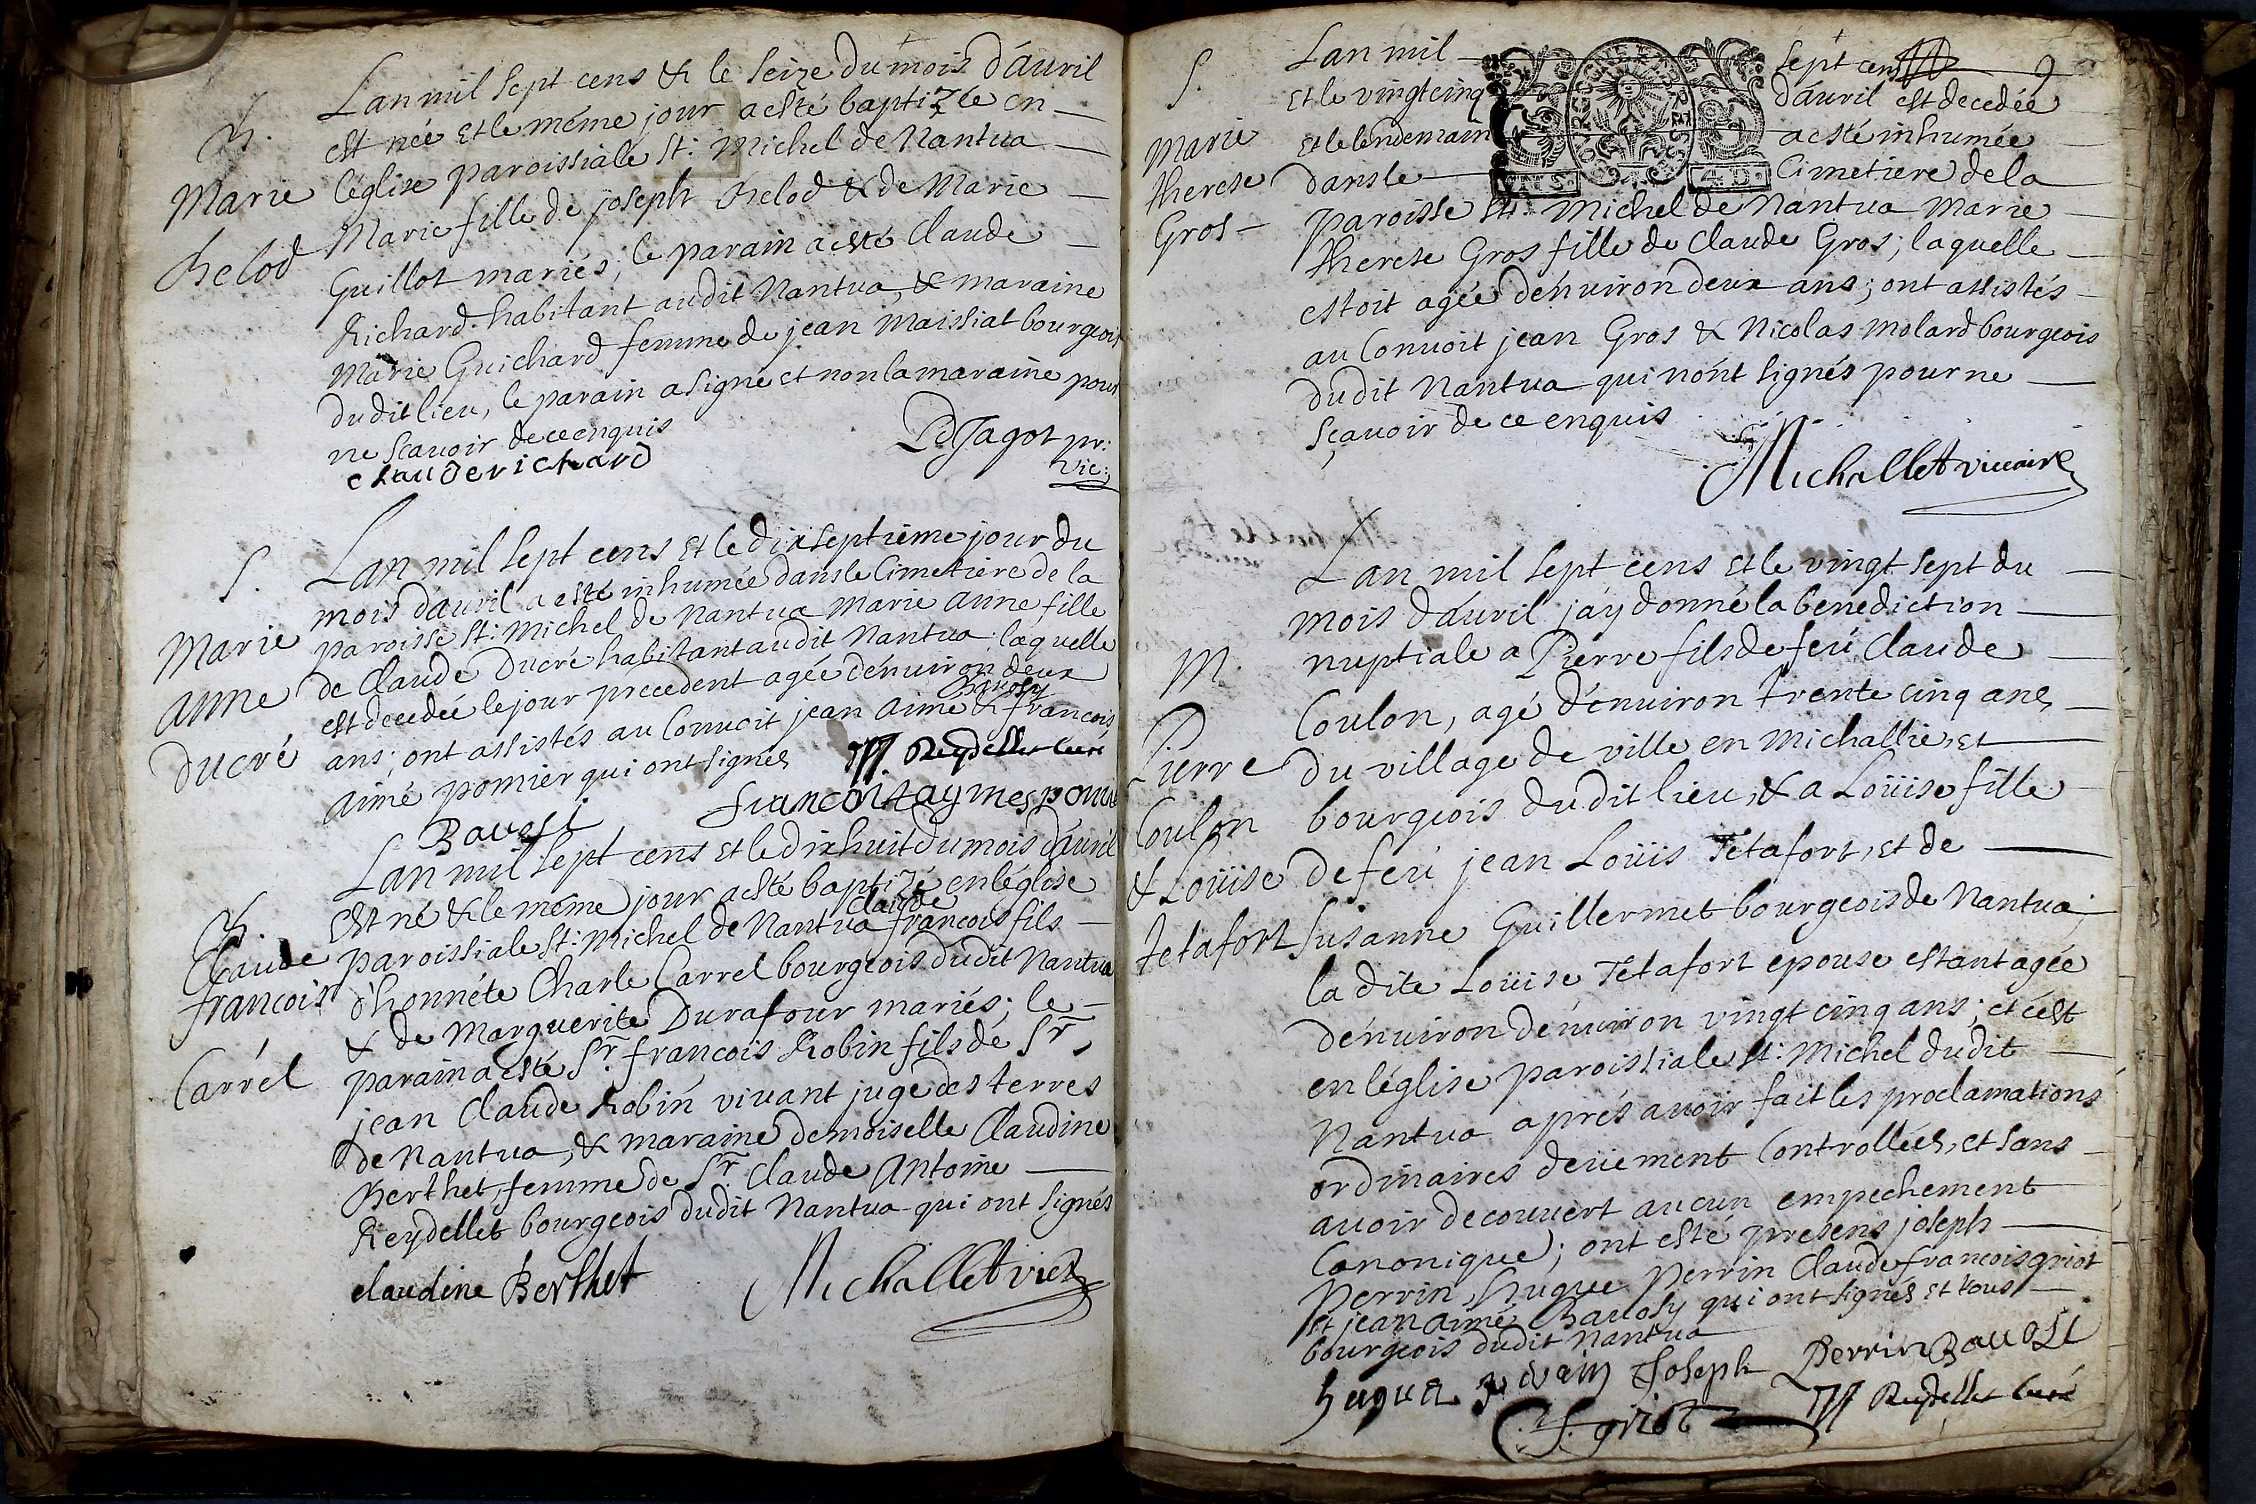 Lan mil sept cens & le seize du mois d'auril
est née et le méme jour a esté baptizée en
B.
Marie
Belod
l'église paroissiale St: Michel de Nantua
Marie fille de joseph Belod & de Marie
Guillot mariés; le parain a esté Claude
Richard habitant audit Nantua, & maraine
Marie Guichard femme de jean Maissiat bourgeois
dudit lieu, le parain a signé et non la maraine pour
ne scavoir de ce enquis
clauderichard
Jagot pr:
vic:
S.
Marie
anne
Ducré
Lan mil sept cens et le dixseptiéme jour du
mois d'auril a esté inhumée dans le Cimetiére de la
paroisse St: Michel de Nantua Marie anne fille
de Claude Ducré habitant audit Nantua; laquelle
est decedée le jour precedent agée d'enuiron deux
ans; ont assistés au Conuoit jean aimé Bauosy & francois
aimé pomier qui ont signés
Reydellet curé
francois aymes pomie
Bauosi
B.
Claude
francois
Carrél
Lan mil sept cens et le dixhuit du mois d'auril
est né & le méme jour a esté baptizé en l'église
paroissiale St: Michel de Nantua claude francois fils
d'honnéte Charle Carrel bourgeois dudit Nantua
& de Marguerite Durafour mariés; le
parain a esté Sr. francois Robin fils de Sr.
jean Claude Robin viuant juge des terres
de Nantua, & maraine demoiselle Claudine
Berthet, femme de Sr. Claude Antoine
Reydellet bourgeois dudit Nantua qui ont signés
claudine Berthet
Michallet vic.
S.
Marie
therese
Gros
Lan mil sept cens
et le vingt cinq d'auril est decedée
et le lendemain a esté inhumée
dans le Cimetiere de la
paroisse St: Michel de Nantua Marie
therese Gros fille de Claude Gros; laquelle
estoit agée d'enuiron deux ans; ont assistés
au Conuoit jean Gros & Nicolas molard bourgeois
dudit Nantua qui n'ont signés pour ne
sçauoir de ce enquis
Michallet vicaire
M.
Pierre
Coulon
& Loüise
tetafort
Lan mil sept cens et le vingt sept du
mois d'auril j'ay donné la benediction
nuptiale a Pierre fils de feü Claude
Coulon, agé d'enuiron trente cinq ans,
du village de ville en Michallie, et
bourgeois dudit lieu, & a Loüise fille
de feü jean Loüis Tetafort, et de
Susanne Guillermet bourgeois de Nantua;
la dite Loüise Tetafort epouse estant agée
d'enuiron d'enuiron vingt cinq ans; et c'est
en l'église paroissiale St: Michel dudit
Nantua aprés auoir fait les proclamations
ordinaires deüement Controllées, et sans
auoir decouuert aucun empechement
Canonique; ont esté presens joseph
Perrin, Hugue Perrin Claude francois griot
et jean aimé Bauosy qui ont signés et tous
bourgeois dudit Nantua
Joseph Perrin Bauosi
Reydellet curé
C. f. griot